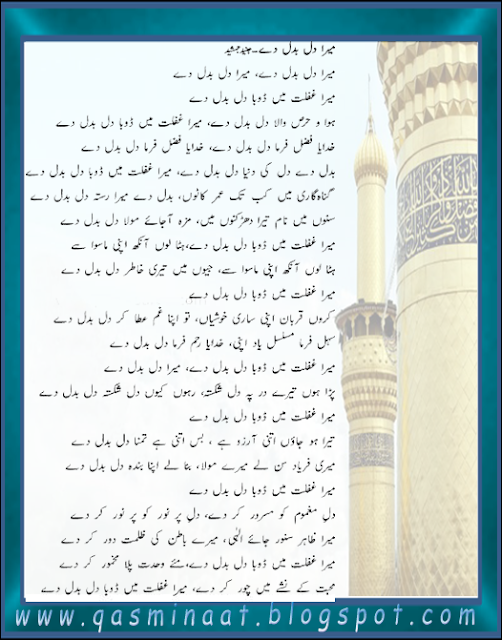 میرا دل بدل دے۔جنیدجمشید
میرا دل بدل دے، میرا دل بدل دے
میرا غفلت میں ڈوبا دل بدل دے
ہوا و حرص والا دل بدل دے، میرا غفلت میں ڈوبا دل بدل دے
خدایا فضل فرما دل بدل دے، خدایا فضل فرما دل بدل دے
بدل دے دل کی دنیا دل بدل دے، میرا غفلت میں ڈوبا دل بدل دے
گناہ گاری میں کب تک عمر کاٹوں، بدل دے میرا رستہ دل بدل دے
سنوں میں نام تیرا دھڑکنوں میں، مزہ آجائے مولا دل بدل دے
میرا غفلت میں ڈوبا دل بدل دے،ہٹا لوں آنکھ اپنی ماسوا سے
ہٹا لوں آنکھ اپنی ماسوا سے، جیوں میں تیری خاطر دل بدل دے
میرا غفلت میں ڈوبا دل بدل دے
کروں قربان اپنی ساری خوشیاں، تو اپنا غم عطا کر دل بدل دے
سہل فرما مسلسل یاد اپنی، خدایا رحم فرما دل بدل دے
میرا غفلت میں ڈوبا دل بدل دے، میرا دل بدل دے
پڑا ہوں تیرے در پہ دل شکستہ، رہوں کیوں دل شکستہ دل بدل دے
میرا غفلت میں ڈوبا دل بدل دے
تیرا ہو جاؤں اتنی آرزو ہے ، بس اتنی ہے تمنا دل بدل دے
میری فریاد سن لے میرے مولا، بنا لے اپنا بندہ دل بدل دے
میرا غفلت میں ڈوبا دل بدل دے
دلِ مغموم کو مسرور کر دے، دلِ پر نور کو پر نور کر دے
میرا ظاہر سنور جائے الٰہی، میرے باطن کی ظلمت دور کر دے
میرا غفلت میں ڈوبا دل بدل دے،مئے وحدت پلا مخمور کر دے
محبت کے نشے میں چور کر دے، میرا غفلت میں ڈوبا دل بدل دے
www.qasminaat.blogspot.com